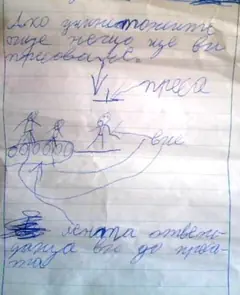 Ако унищожите
още нещо ще ви
пресоваме.
преса
вие
лента отвеж-
даща ви до преса-
та